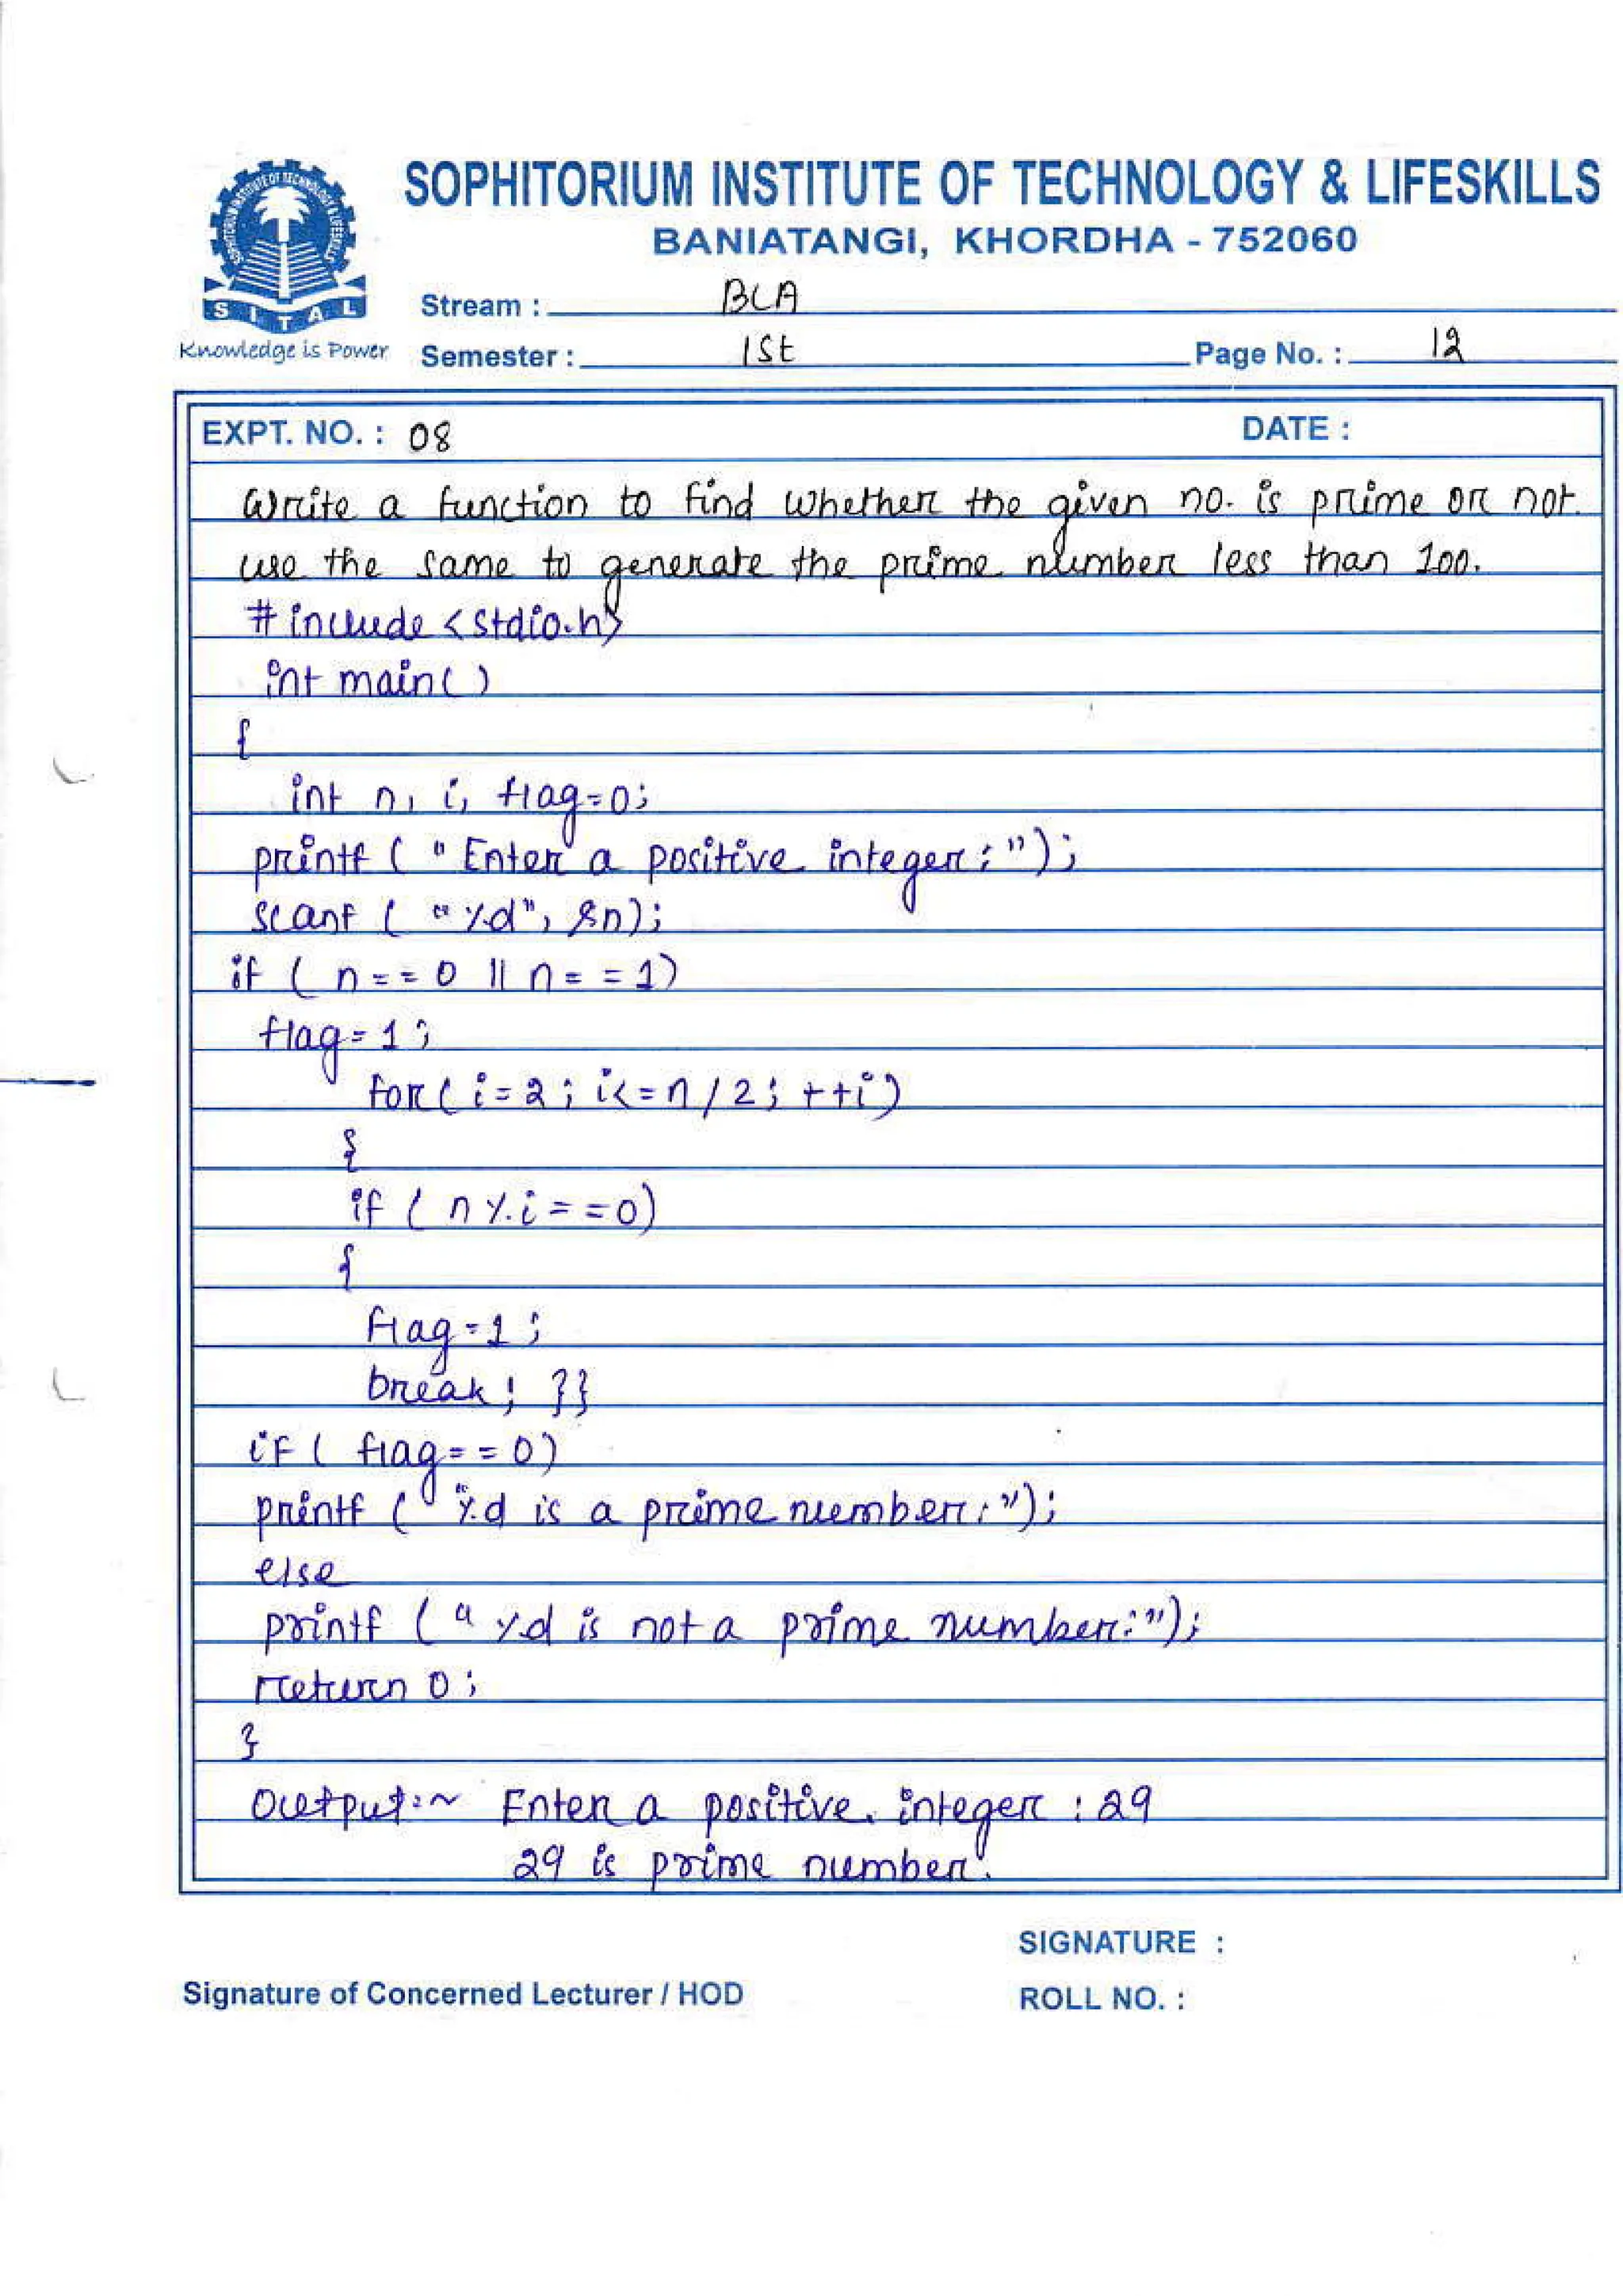 SOPHITORIUM INSTITUTE OF TECHNOLOGY & LIFESKILLS
BANIATANGI, KHORDHA - 752060
SOPHITORIUM INSTITUTE OF TECHNOLOGY & LIFESKILLS
SITAL
Knowledge is Power
Stream : BCA
Semester : 1St Page No. : 12
EXPT. NO. : 08 DATE :
Write a function to find whether the given no. is prime or not.
use the same to generate the prime number less than 100.
# include <stdio.h>
int main( )
{
int n, i, flag=0;
printf ( " Enter a positive integer : ");
scanf ( "%d", &n);
if ( n == 0 || n = = 1)
flag = 1 ;
for ( i = 2 ; i<= n / 2 ; ++i)
{
if ( n %.i = =0)
{
flag = 1 ;
break ; }}
if ( flag = = 0)
printf ( "%d is a prime number:");
else
printf ( "%d is not a prime number:");
return 0 ;
}
Output:~ Enter a positive integer : 29
29 is prime number.
SIGNATURE :
Signature of Concerned Lecturer / HOD
ROLL NO. :